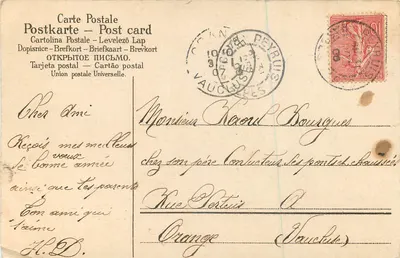 Carte Postale
Postkarte - Post card
Cartolina Postale - Levelező Lap
Dopisnice - Brefkort - Briefkaart - Brevkort
ОТКРЫТОЕ ПИСЬМО.
Tarjeta postal - Cartão postal
Union postale Universelle.
VAUCLUSE
PEYRUIS
Cher Ami
Reçois mes meilleurs
voeux
de bonne année
ainsi que tes parents
Ton ami qui
t'aime
H. D.
Monsieur Raoul Bourgues
chez son père Conducteur des ponts et chaussées
Rue Portuis À
Orange (Vaucluse)